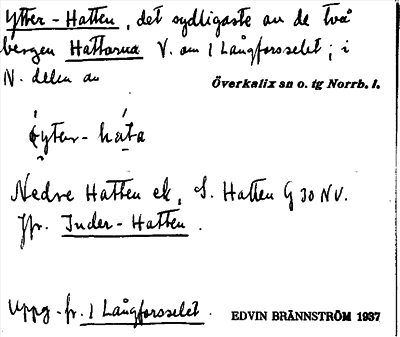 Ytter-Hatten, det sydligaste av de två
bergen Hattarna V. om 1 Långforsselet; i
N. delen av
Överkalix sn o. tg Norrb. l.
ýtər- háta
Nedre Hatten ek, S. Hatten G 30 NV.
Jfr. Inder-Hatten.
Uppg. fr. 1 Långforsselet.
EDVIN BRÄNNSTRÖM 1937